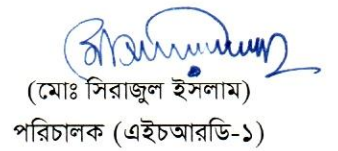 (মোঃ সিরাজুল ইসলাম)
পরিচালক (এইচআরডি-১)